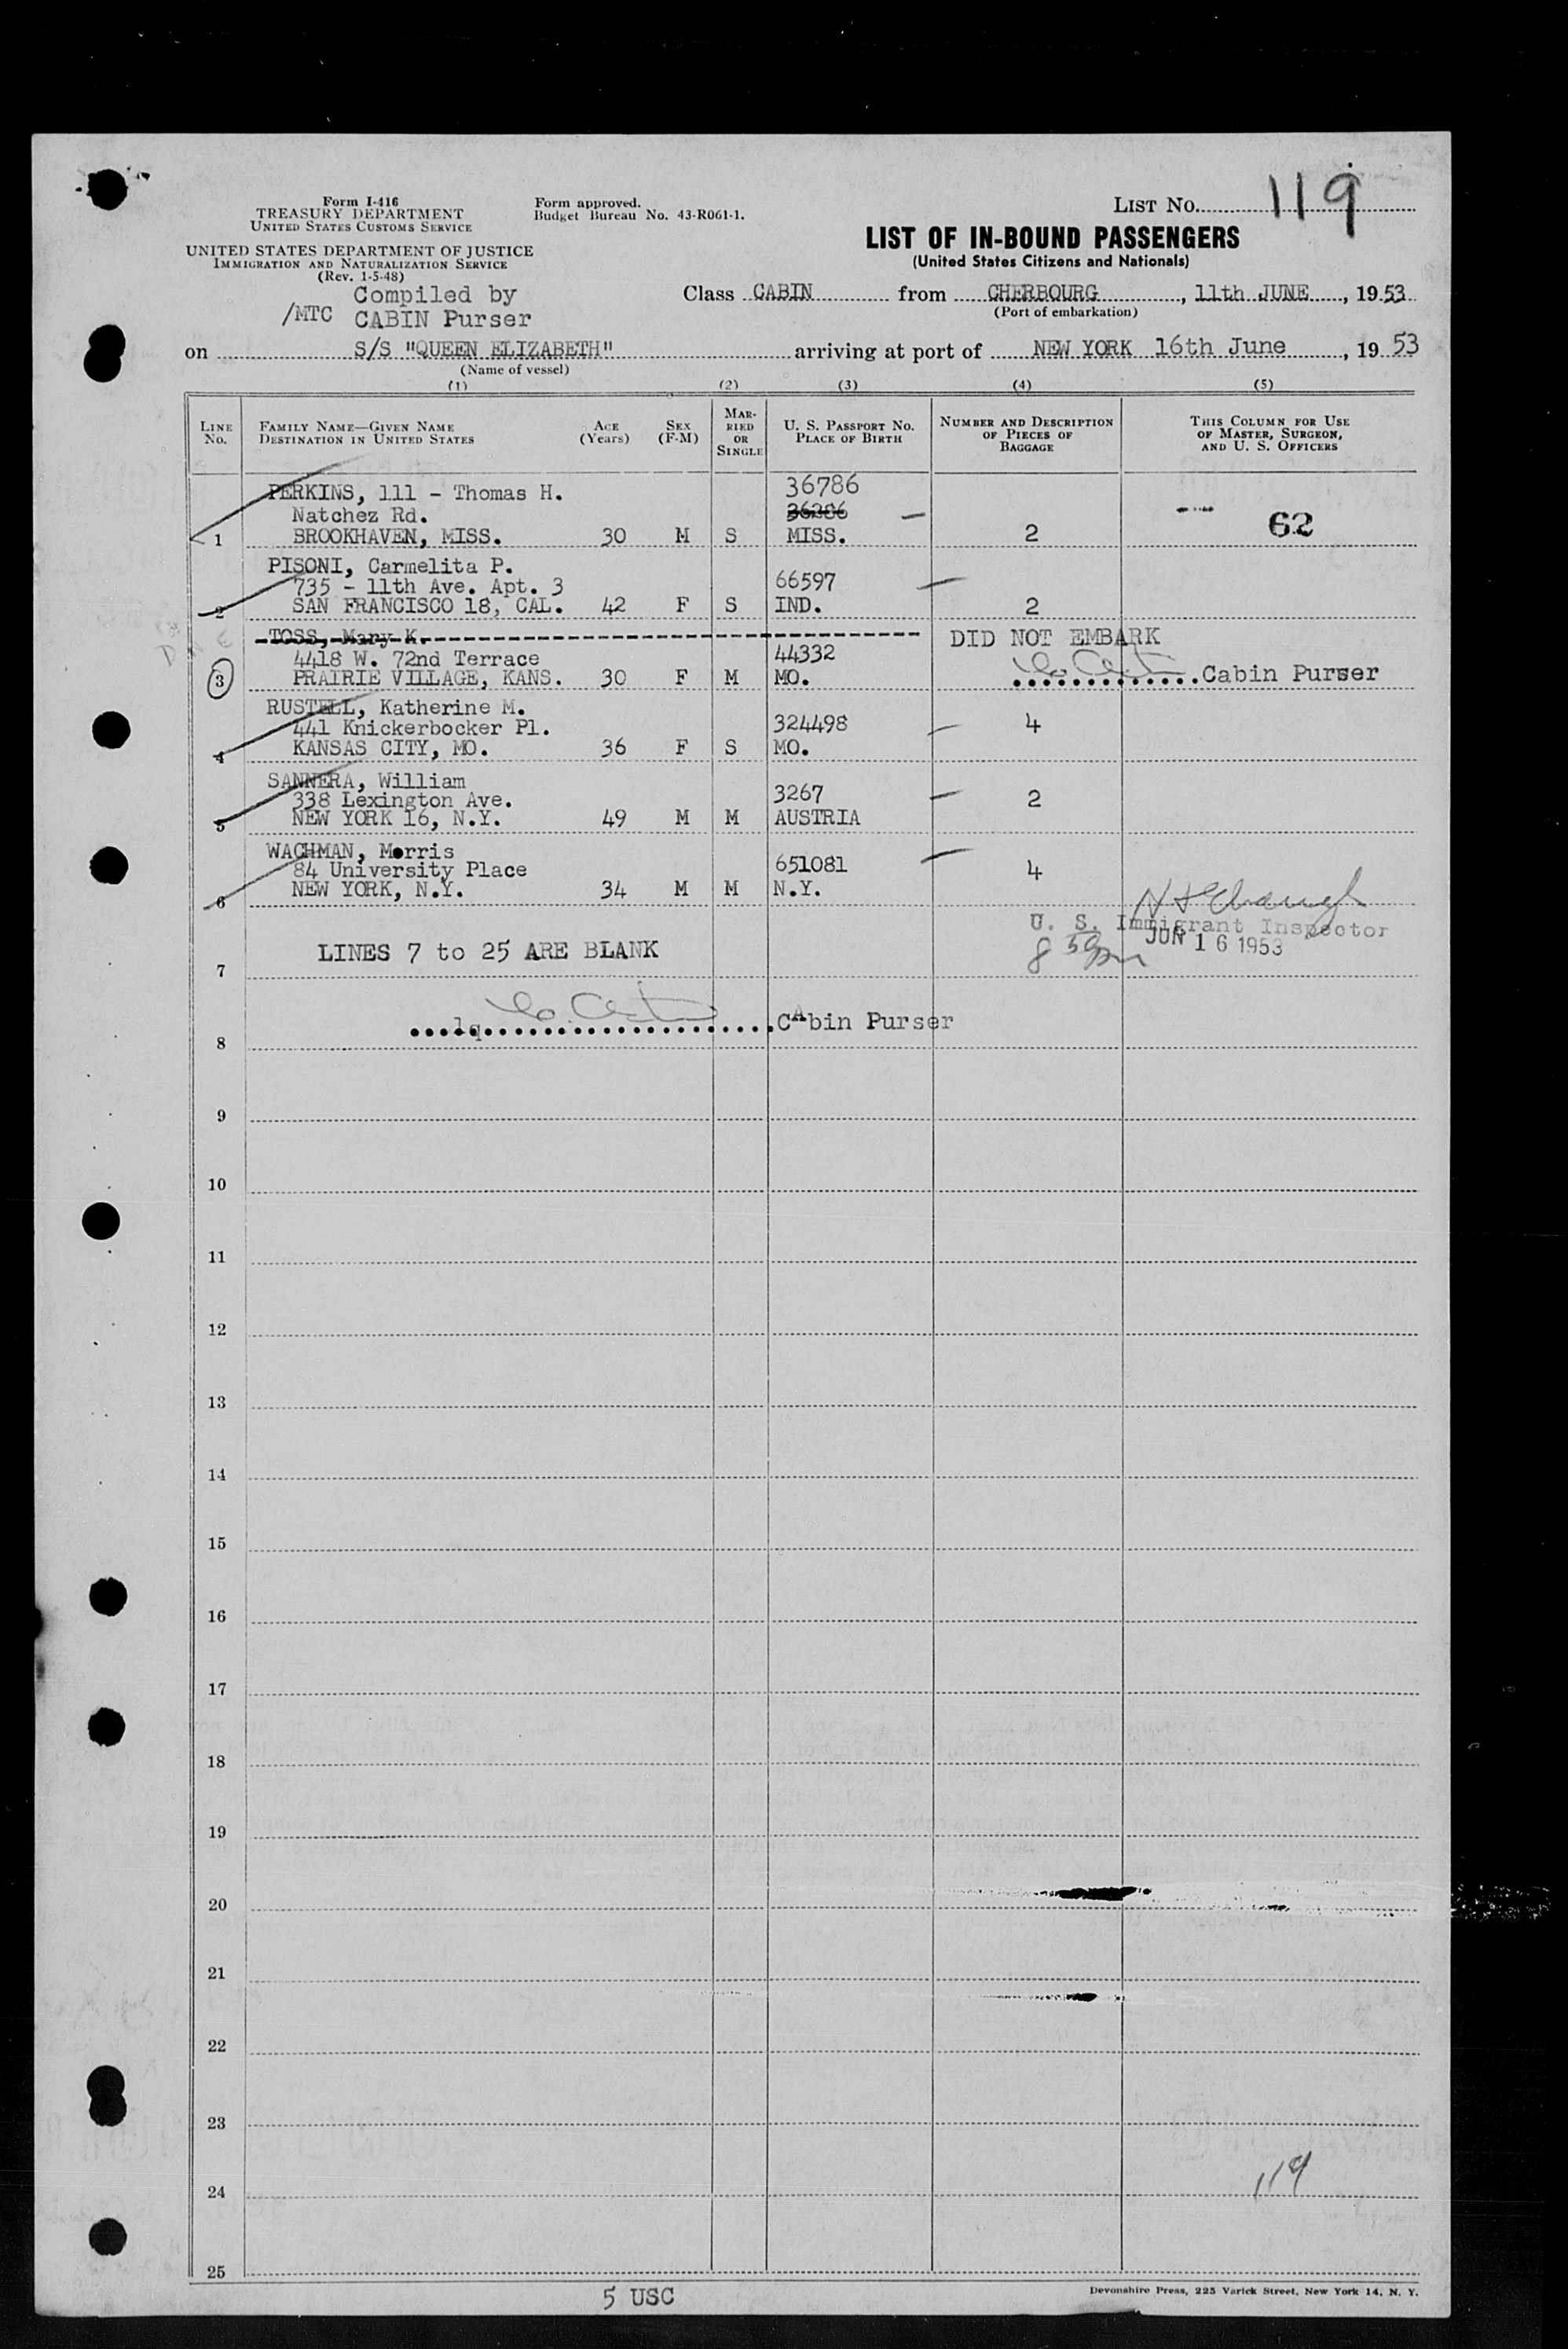 119
Form I-416
TREASURY DEPARTMENT
UNITED STATES CUSTOMS SERVICE
UNITED STATES DEPARTMENT OF JUSTICE
IMMIGRATION AND NATURALIZATION SERVICE
(Rev. 1-5-48)
Form approved.
Budget Bureau No. 43-R061-1.
LIST No.
LIST OF IN-BOUND PASSENGERS
(United States Citizens and Nationals)
Compiled by
/MTC CABIN Purser
Class CABIN from CHERBOURG, 11th JUNE, 1953
(Port of embarkation)
on S/S "QUEEN ELIZABETH" arriving at port of NEW YORK 16th June, 19 53
(Name of vessel)
(1) (2) (3) (4) (5)
LINE No. FAMILY NAME—GIVEN NAME DESTINATION IN UNITED STATES AGE (Years) SEX (F-M) MARRIED OR SINGLE U. S. PASSPORT No. PLACE OF BIRTH NUMBER AND DESCRIPTION OF PIECES OF BAGGAGE THIS COLUMN FOR USE OF MASTER, SURGEON, AND U. S. OFFICERS
PERKINS, 111 - Thomas H. 36786
Natchez Rd. 36286 62
1 BROOKHAVEN, MISS. 30 M S MISS. 2
PISONI, Carmelita P.
735 - 11th Ave. Apt. 3 66597
2 SAN FRANCISCO 18, CAL. 42 F S IND. 2
TOSS, Mary K. DID NOT EMBARK
4418 W. 72nd Terrace 44332
3 PRAIRIE VILLAGE, KANS. 30 F M MO. Cabin Purser
RUSTELL, Katherine M.
441 Knickerbocker Pl. 324498 4
4 KANSAS CITY, MO. 36 F S MO.
SANNERA, William
338 Lexington Ave. 3267 2
5 NEW YORK 16, N.Y. 49 M M AUSTRIA
WACHMAN, Morris
84 University Place 651081 4
6 NEW YORK, N.Y. 34 M M N.Y.
U. S. Immigrant Inspector
8 50 pm JUN 16 1953
7 LINES 7 to 25 ARE BLANK
8 lq CAbin Purser
9
10
11
12
13
14
15
16
17
18
19
20
21
22
23
24 119
25
5 USC
Devonshire Press, 225 Varick Street, New York 14, N. Y.